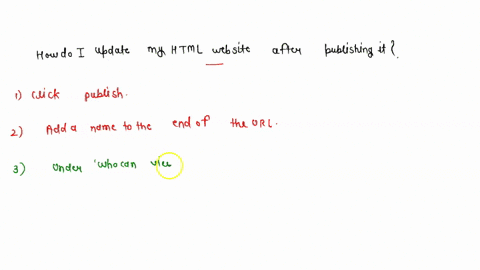 How do I update my HTML website after publishing it?
1) Click publish.
2) Add a name to the end of the URL.
3) Under 'who can vie